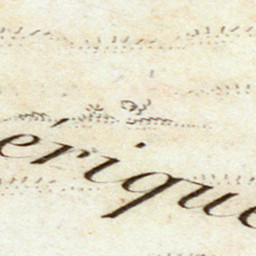 érique